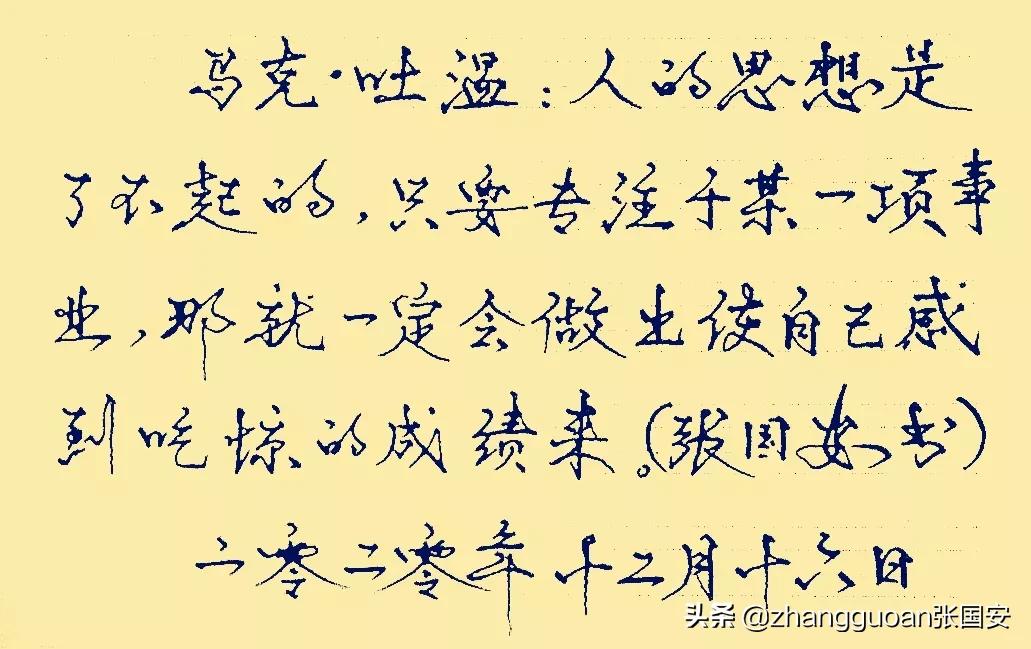 马克·吐温：人的思想是
了不起的，只要专注于某一项事
业，那就一定会做出使自己感
到吃惊的成绩来。（张国安书）
二零二零年十二月十六日
头条 @zhangguoan张国安